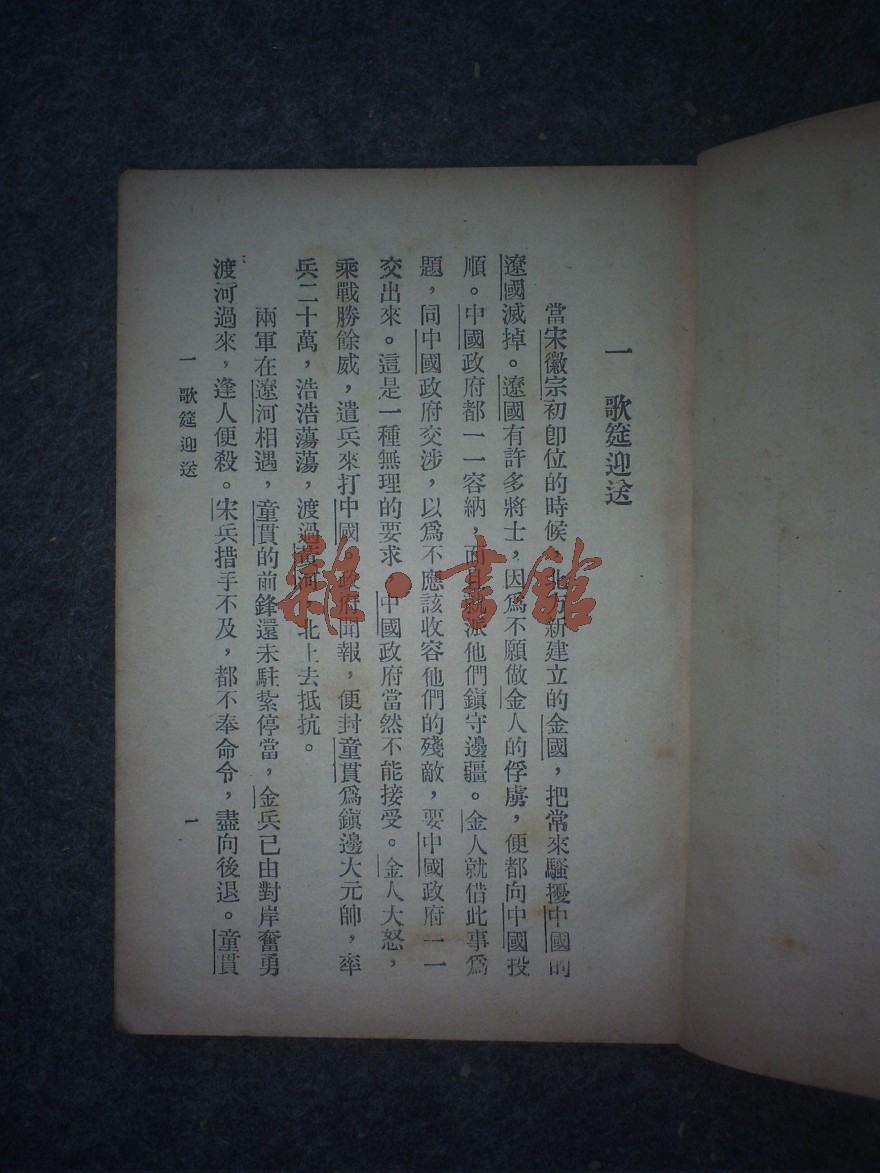 一　歌筵迎送
當宋徽宗初卽位的時候，北方新建立的金國，把常來騷擾中國的
遼國滅掉。遼國有許多將士，因爲不願做金人的俘虜，便都向中國投
順。中國政府都一一容納，而且就派他們鎮守邊疆。金人就借此事爲
題，同中國政府交涉，以爲不應該收容他們的殘敵，要中國政府一一
交出來。這是一種無理的要求，中國政府當然不能接受。金人大怒，
乘戰勝餘威，遣兵來打中國。政府聞報，便封童貫爲鎮邊大元帥，率
兵二十萬，浩浩蕩蕩，渡過黃河，北上去抵抗。
兩軍在遼河相遇，童貫的前鋒還未駐紮停當，金兵已由對岸奮勇
渡河過來，逢人便殺。宋兵措手不及，都不奉命令，盡向後退。童貫
一　歌筵迎送
一
雜·書館